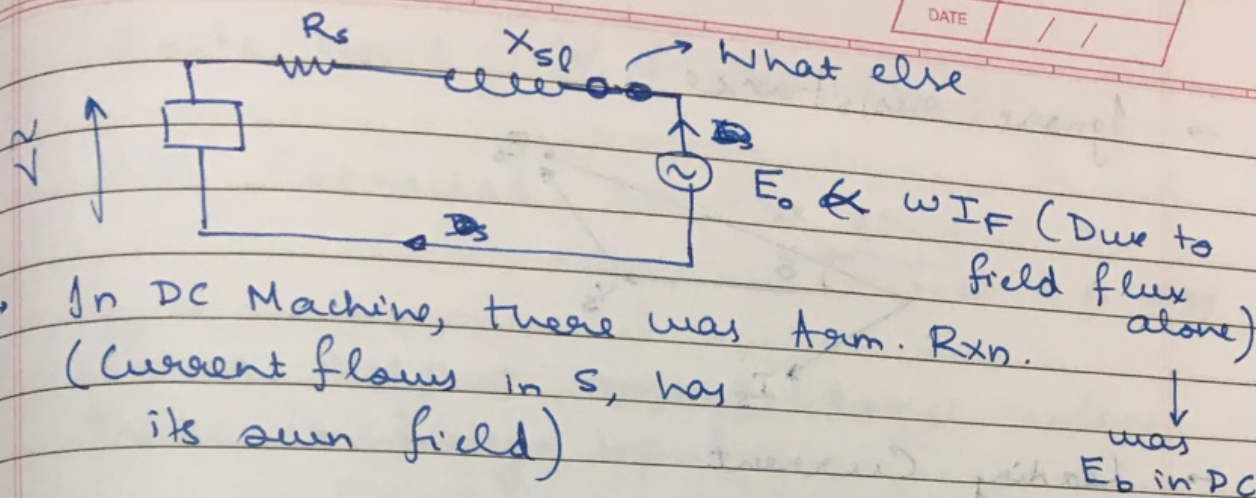 DATE / /
Rs
Xsl
What else
E₀ ∝ ωI_F (Due to
field flux
alone)
In DC Machine, there was Arm. Rxn.
(Current flows in S, has
its own field)
was
E_b in DC